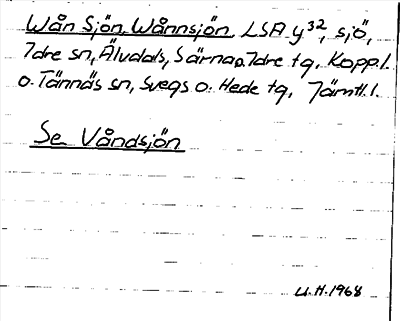 Wån Sjön, Wånnsjön, LSA y³², sjö,
Idre sn, Älvdals, Särna o. Idre tg, Kopp. l.
o. Tännäs sn, Svegs o. Hede tg, Jämtl. l.
Se Våndsjön
U.H. 1968